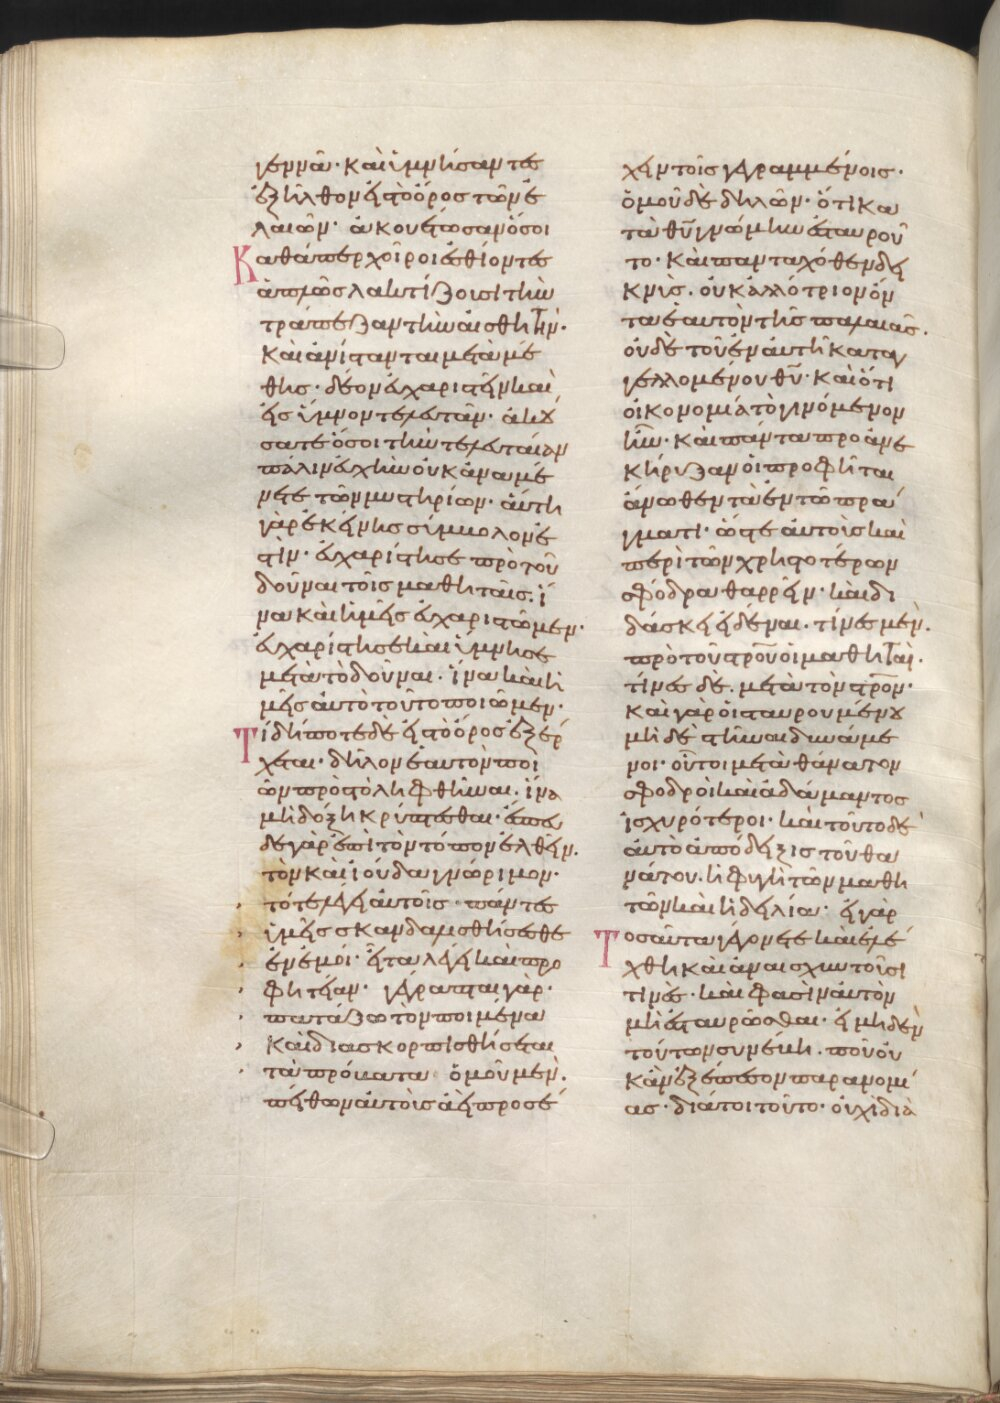 γεννᾶ· καὶ ὑμνήσαντες
ἐξῆλθον εἰς τὸ ὄρος τῶν ἐ
λαιῶν· ἀκουέτωσαν ὅσοι
Καθάπερ χοῖροι ἐσθίοντες
ἁπλῶς λακτίζουσι τὴν
τράπεζαν τὴν αἰσθητήν·
καὶ ἀνίστανται μετὰ μέ
θης· δέον εὐχαριστεῖν καὶ
εἰς ὕμνον τελευτᾶν· ἀκού
σατε ὅσοι τὴν τελευταίαν
πάλιν εὐχὴν οὐκ ἀναμέ
νετε τῶν μυστηρίων· αὕτη
γὰρ ἐκείνης σύμβολόν ἐ
στιν· εὐχαρίστησε πρὸ τοῦ
δοῦναι τοῖς μαθηταῖς· ἵ
να καὶ ἡμεῖς εὐχαριστῶμεν·
εὐχαρίστησε καὶ ὕμνησε
μετὰ τὸ δοῦναι· ἵνα καὶ ἡ
μεῖς αὐτὸ τοῦτο ποιῶμεν·
Τί δήποτε δὲ εἰς τὸ ὄρος ἐξέρ
χεται· δῆλον ἑαυτὸν ποι
ῶν πρὸς τὸ ληφθῆναι· ἵνα
μὴ δόξη κρύπτεσθαι· ἔσπευ
δε γὰρ ἐπὶ τὸν τόπον ἐλθεῖν·
τὸν καὶ ἰούδα γνώριμον·
τότε λέγει αὐτοῖς· πάντες
ὑμεῖς σκανδαλισθήσεσθε
ἐν ἐμοί· εἶτα λέγει καὶ προ
φητείαν· γέγραπται γὰρ·
πατάξω τὸν ποιμένα
καὶ διασκορπισθήσεται
τὰ πρόβατα· ὁμοῦ μὲν·
πείθων αὐτοὺς ἀεὶ προσέ
χειν τοῖς γεγραμμένοις·
ὁμοῦ δὲ δηλῶν· ὅτι κα
τὰ θῦ γνώμην ἐσταυροῦ
το· καὶ πανταχόθεν δει
κνὺς· οὐκ ἀλλότριον ὄν
τα ἑαυτὸν τῆς παλαιᾶς·
οὐδὲ τοῦ ἐν αὐτῆ καταγ
γελλομένου θῦ· καὶ ὅτι
οἰκονομία τὸ γινόμενον
ἦν· καὶ πάντα προανε
κήρυξαν οἱ προφῆται
ἄνωθεν τὰ ἐν τῶ πρά
γματι· ὥστε αὐτοὺς καὶ
περὶ τῶν χρηστοτέρων
σφόδρα θαρρεῖν· καὶ δι
δάσκει εἰδέναι· τίνες μὲν·
πρὸ τοῦ στροῦ οἱ μαθηταὶ·
τίνες δὲ· μετὰ τὸν στρον·
καὶ γὰρ οἱ σταυρουμένου
μηδὲ στῆναι δυνάμε
νοι· οὗτοι μετὰ θάνατον
σφοδροὶ καὶ ἀδάμαντος
ἰσχυρότεροι· καὶ τοῦτο δὲ
αὐτὸ ἀπόδειξις τοῦ θα
νάτου· ἡ φυγὴ τῶν μαθη
τῶν καὶ ἡ δειλία· εἰ γὰρ
Τοσαῦτα γέγονε καὶ ἐλέ
χθη καὶ ἀναισχυντοῦσί
τινὲς· καὶ φασὶν αὐτὸν
μὴ ἐσταυρῶσθαι· εἰ μηδὲν
τούτων συνέβη· ποῦ οὐ
κ ἂν ἐξέπεσον παρανομί
ας· διάτοι τοῦτο· οὐχὶ διὰ